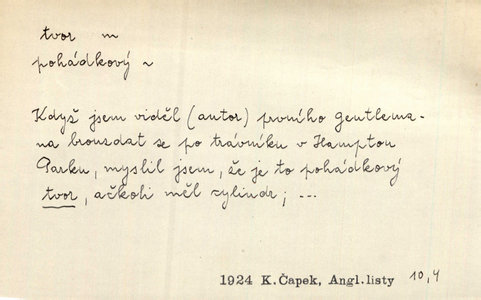 tvor m
pohádkový ~
Když jsem viděl (autor) prvního gentlema-
na brouzdat se po trávníku v Hampton
Parku, myslil jsem, že je to pohádkový
tvor, ačkoli měl cylindr; ...
1924 K.Čapek, Angl.listy 10,4